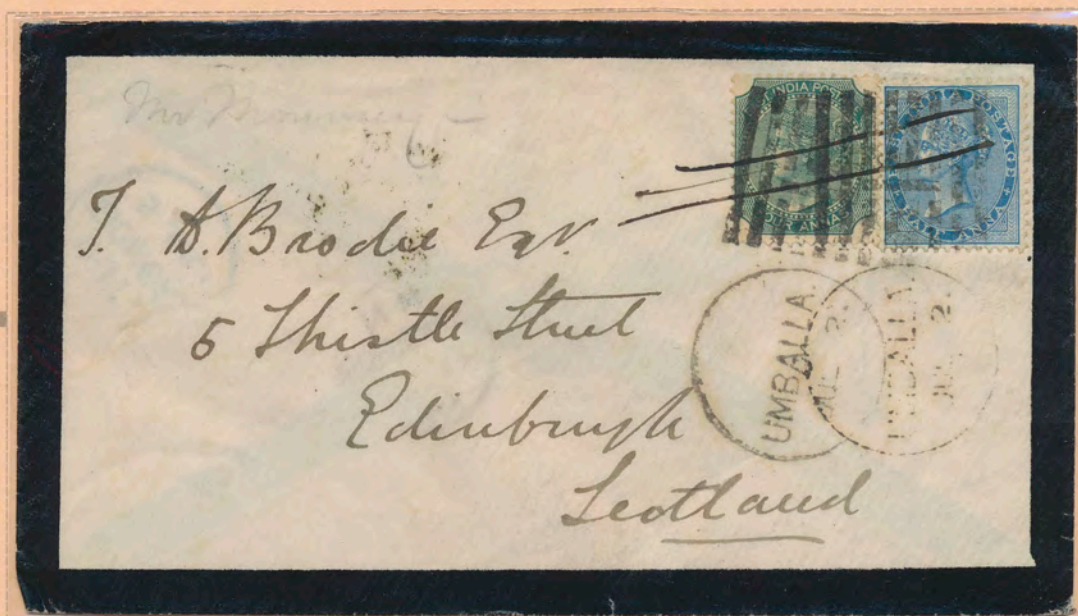 INDIA POSTAGE
FOUR ANNAS
HALF ANNA
T. A. Brodie Esqr
5 Thistle Street
Edinburgh
Scotland
UMBALLA.
JUL 2.
UMBALLA.
JUL 2.